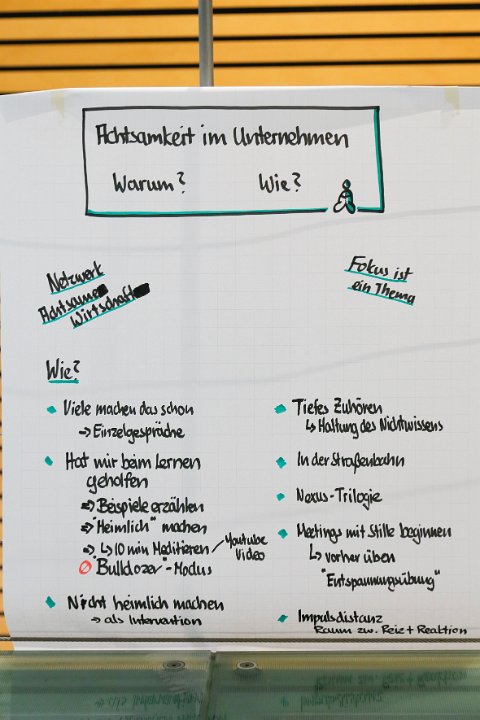 Achtsamkeit im Unternehmen
Warum? Wie?
Netzwerk
Achtsame
Wirtschaft
Fokus ist
ein Thema
Wie?
Viele machen das schon
→ Einzelgespräche
Hat mir beim Lernen
geholfen
⇒ Beispiele erzählen
⇒ "Heimlich" machen
⇒ ↳ 10 min Meditieren
Youtube
Video
"Bulldozer"-Modus
Nicht heimlich machen
→ als Intervention
Tiefes Zuhören
↳ Haltung des Nichtwissens
In der Straßenbahn
Nexus-Trilogie
Meetings mit Stille beginnen
↳ vorher üben
"Entspannungsübung"
Impulsdistanz
Raum zw. Reiz + Reaktion